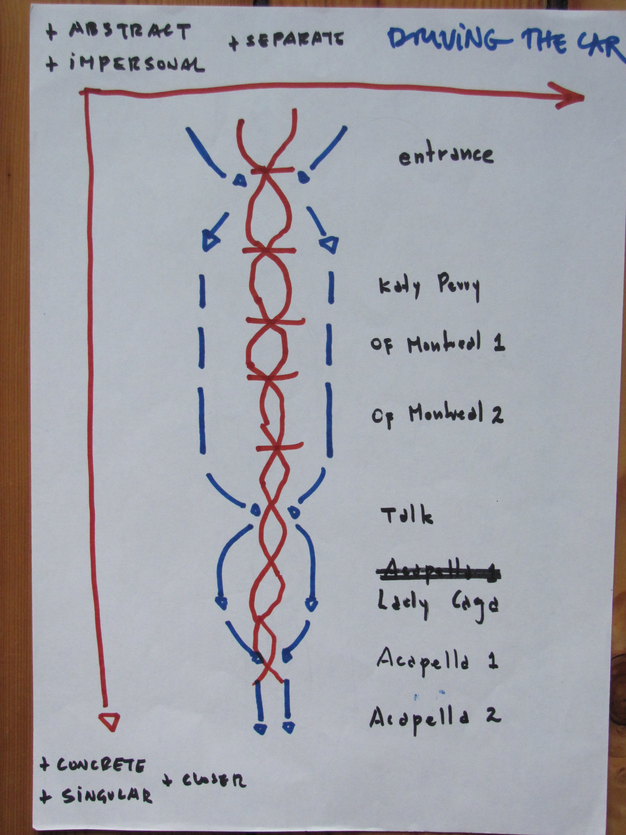 + ABSTRACT
+ IMPERSONAL
+ SEPARATE
DRIVING THE CAR
entrance
Katy Perry
OF Montreal 1
OF Montreal 2
Talk
Acapella 1
Lady Gaga
Acapella 1
Acapella 2
+ CONCRETE
+ SINGULAR
+ CLOSER